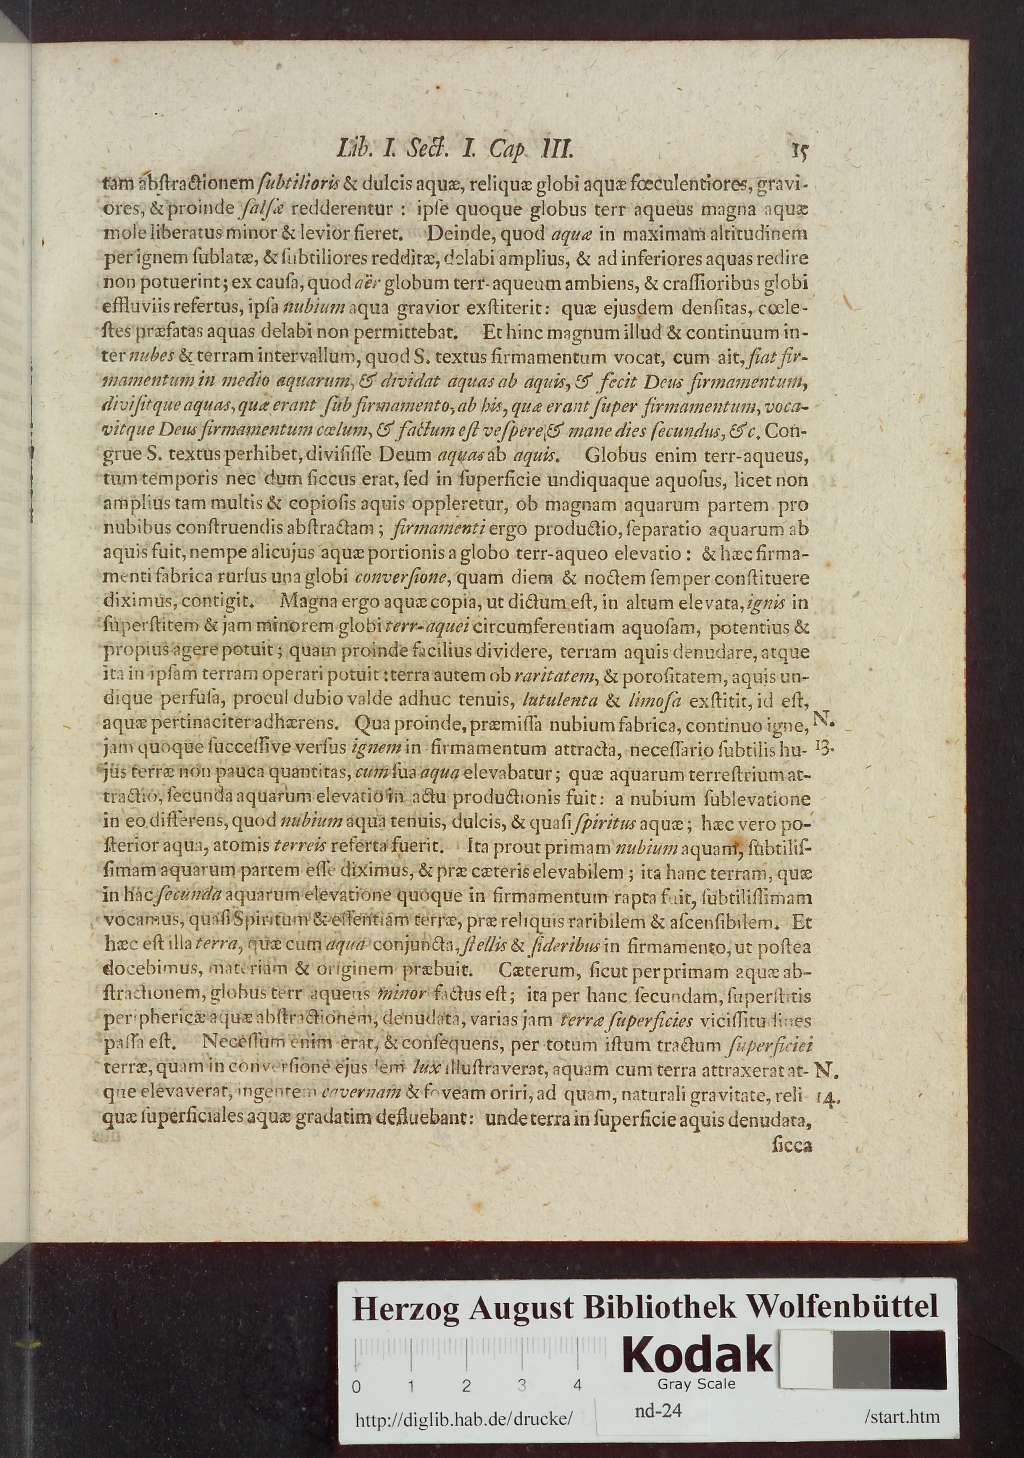 Lib. I. Sect. I. Cap. III. 15
tam abſtractionem ſubtilioris & dulcis aquæ, reliquæ globi aquæ fœculentiores, gravi-
ores, & proinde ſalſæ redderentur : ipſe quoque globus terr aqueus magna aquæ
mole liberatus minor & levior fieret. Deinde, quod aquæ in maximam altitudinem
per ignem ſublatæ, & ſubtiliores redditæ, delabi amplius, & ad inferiores aquas redire
non potuerint; ex cauſa, quod aër globum terr-aqueum ambiens, & craſſioribus globi
effluviis refertus, ipſa nubium aqua gravior exſtiterit: quæ ejusdem denſitas, cœle-
ſtes præfatas aquas delabi non permittebat. Et hinc magnum illud & continuum in-
ter nubes & terram intervallum, quod S. textus firmamentum vocat, cum ait, fiat fir-
mamentum in medio aquarum, & dividat aquas ab aquis, & fecit Deus firmamentum,
diviſitque aquas, quæ erant ſub firmamento, ab his, quæ erant ſuper firmamentum, voca-
vitque Deus firmamentum cœlum, & factum eſt veſpere & mane dies ſecundus, &c. Con-
grue S. textus perhibet, diviſiſſe Deum aquas ab aquis. Globus enim terr-aqueus,
tum temporis nec dum ſiccus erat, ſed in ſuperficie undiquaque aquoſus, licet non
amplius tam multis & copioſis aquis oppleretur, ob magnam aquarum partem pro
nubibus conſtruendis abſtractam ; firmamenti ergo productio, ſeparatio aquarum ab
aquis fuit, nempe alicujus aquæ portionis a globo terr-aqueo elevatio : & hæc firma-
menti fabrica rurſus una globi converſione, quam diem & noctem ſemper conſtituere
diximus, contigit. Magna ergo aquæ copia, ut dictum eſt, in altum elevata, ignis in
ſuperſtitem & jam minorem globi terr-aquei circumferentiam aquoſam, potentius &
propius agere potuit ; quam proinde facilius dividere, terram aquis denudare, atque
ita in ipſam terram operari potuit : terra autem ob raritatem, & poroſitatem, aquis un-
dique perfuſa, procul dubio valde adhuc tenuis, lutulenta & limoſa exſtitit, id eſt,
aquæ pertinaciter adhærens. Qua proinde, præmiſſa nubium fabrica, continuo igne, N.
jam quoque ſucceſſive verſus ignem in firmamentum attracta, neceſſario ſubtilis hu- 13.
jus terræ non pauca quantitas, cum ſua aqua elevabatur ; quæ aquarum terreſtrium at-
tractio, ſecunda aquarum elevatio in actu productionis fuit : a nubium ſublevatione
in eo differens, quod nubium aqua tenuis, dulcis, & quaſi ſpiritus aquæ ; hæc vero po-
ſterior aqua, atomis terreis referta fuerit. Ita prout primam nubium aquam, ſubtiliſ-
ſimam aquarum partem eſſe diximus, & præ cæteris elevabilem ; ita hanc terram, quæ
in hac ſecunda aquarum elevatione quoque in firmamentum rapta fuit, ſubtiliſſimam
vocamus, quaſi Spiritum & eſſentiam terræ, præ reliquis raribilem & aſcenſibilem. Et
hæc eſt illa terra, quæ cum aqua conjuncta, ſtellis & ſideribus in firmamento, ut poſtea
docebimus, materiam & originem præbuit. Cæterum, ſicut per primam aquæ ab-
ſtractionem, globus terr aqueus minor factus eſt ; ita per hanc ſecundam, ſuperſtitis
periphericæ aquæ abſtractionem, denudata, varias jam terræ ſuperficies viciſſitudines
paſſa eſt. Neceſſum enim erat, & conſequens, per totum iſtum tractum ſuperficiei
terræ, quam in converſione ejusdem lux illuſtraverat, aquam cum terra attraxerat at- N.
que elevaverat, ingentem cavernam & foveam oriri, ad quam, naturali gravitate, reli 14.
quæ ſuperficiales aquæ gradatim defluebant : unde terra in ſuperficie aquis denudata,
ſicca
Herzog August Bibliothek Wolfenbüttel
Kodak
Gray Scale
0 1 2 3 4
http://diglib.hab.de/drucke/ nd-24 /start.htm